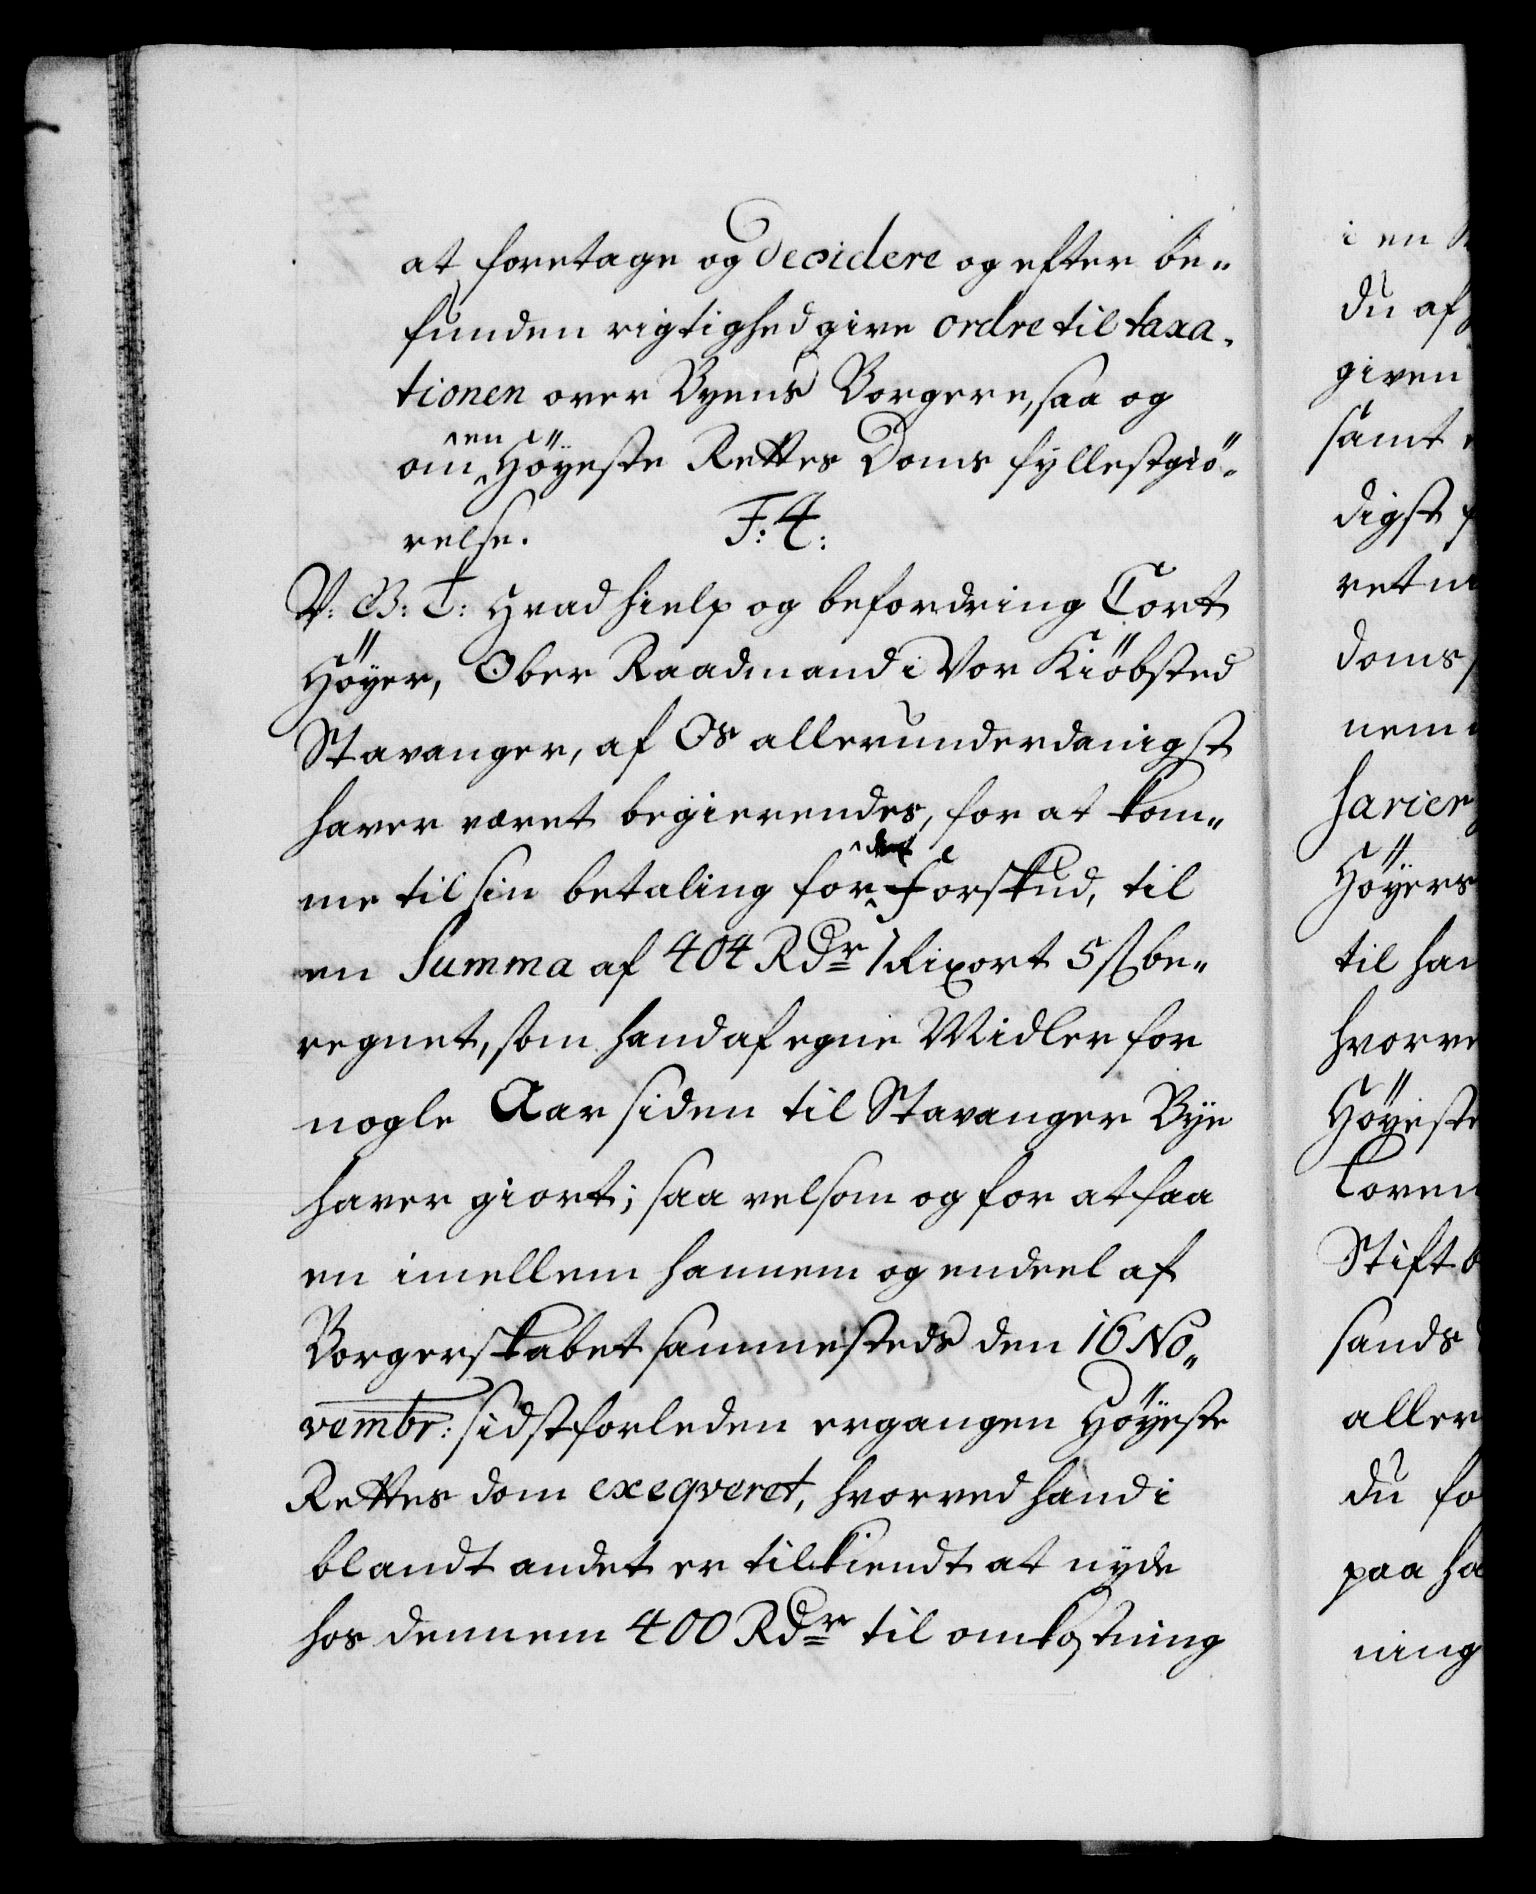 at foretage og decidere og efter be„
funden rigtighed give ordre til taxa„
tionen over Byens Borgere, saa og
om en Höyeste Rettes Doms fyllestgiö„
relse. F: 4:
V: G: T: Hvad hielp og befordring Cort
Höyer, Ober Raadmand i Vor Kiöbsted
Stavanger, af Os allerunderdanigst
haver været begierendes, for at kom„
me til sin betaling for det Forskud, til
en Summa af 404 Rdr 1 Rixort 5 ß be„
regnet, som hand af egne Midler for
nogle Aar siden til Stavanger Bye
haver giort; saa velsom og for at faa
en imellem hannem og endeel af
Borgerskabet sammesteds den 16 No„
vembr: sidstforleden ergangen Höyeste
Rettes dom exeqveret, hvorved hand i
blandt andet er tilkiendt at nyde
hos dennem 400 Rdr til omkostning
i en
du af
given
samt
digst
ret
doms
nem
harier
Höyers
til han
hvorve
Höyeste
Coren
Stift b
sands
aller
du fo
paa ha
ning